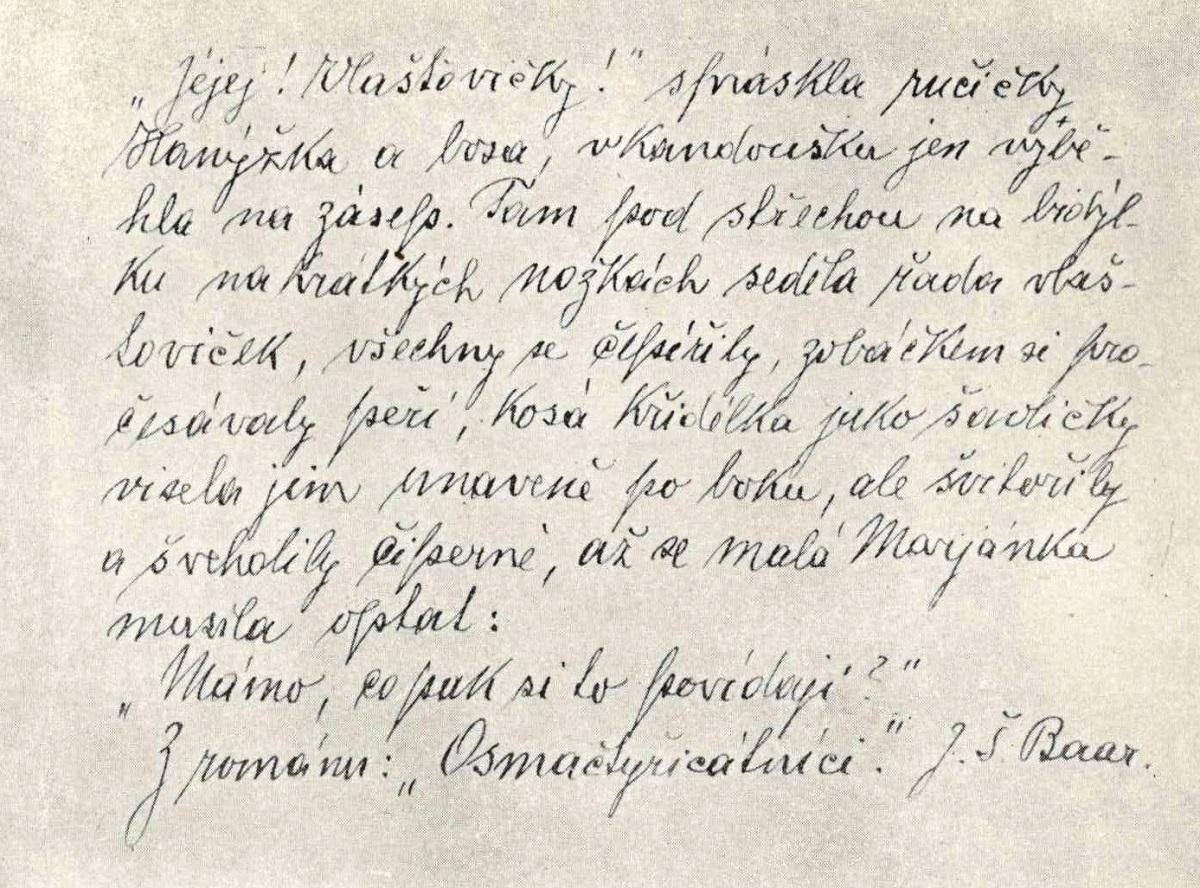 „Jéjej! Vlaštovičky!" spráskla ručičky
Hanýžka a bosa, v kandoušku jen výbě-
hla na zásep. Tam pod střechou na bidýl-
ku na krátkých nožkách seděla řada vlaš-
toviček, všechny se čepířily, zobáčkem si pro-
česávaly peří, kosá křidélka jako šavličky
visela jim unaveně po boku, ale švitořily
a švehdlily čiperně, až se malá Marjánka
musila optat:
„Mámo, copak si to povídají?"
Z románu: „Osmačtyřicátníci." J. Š. Baar.